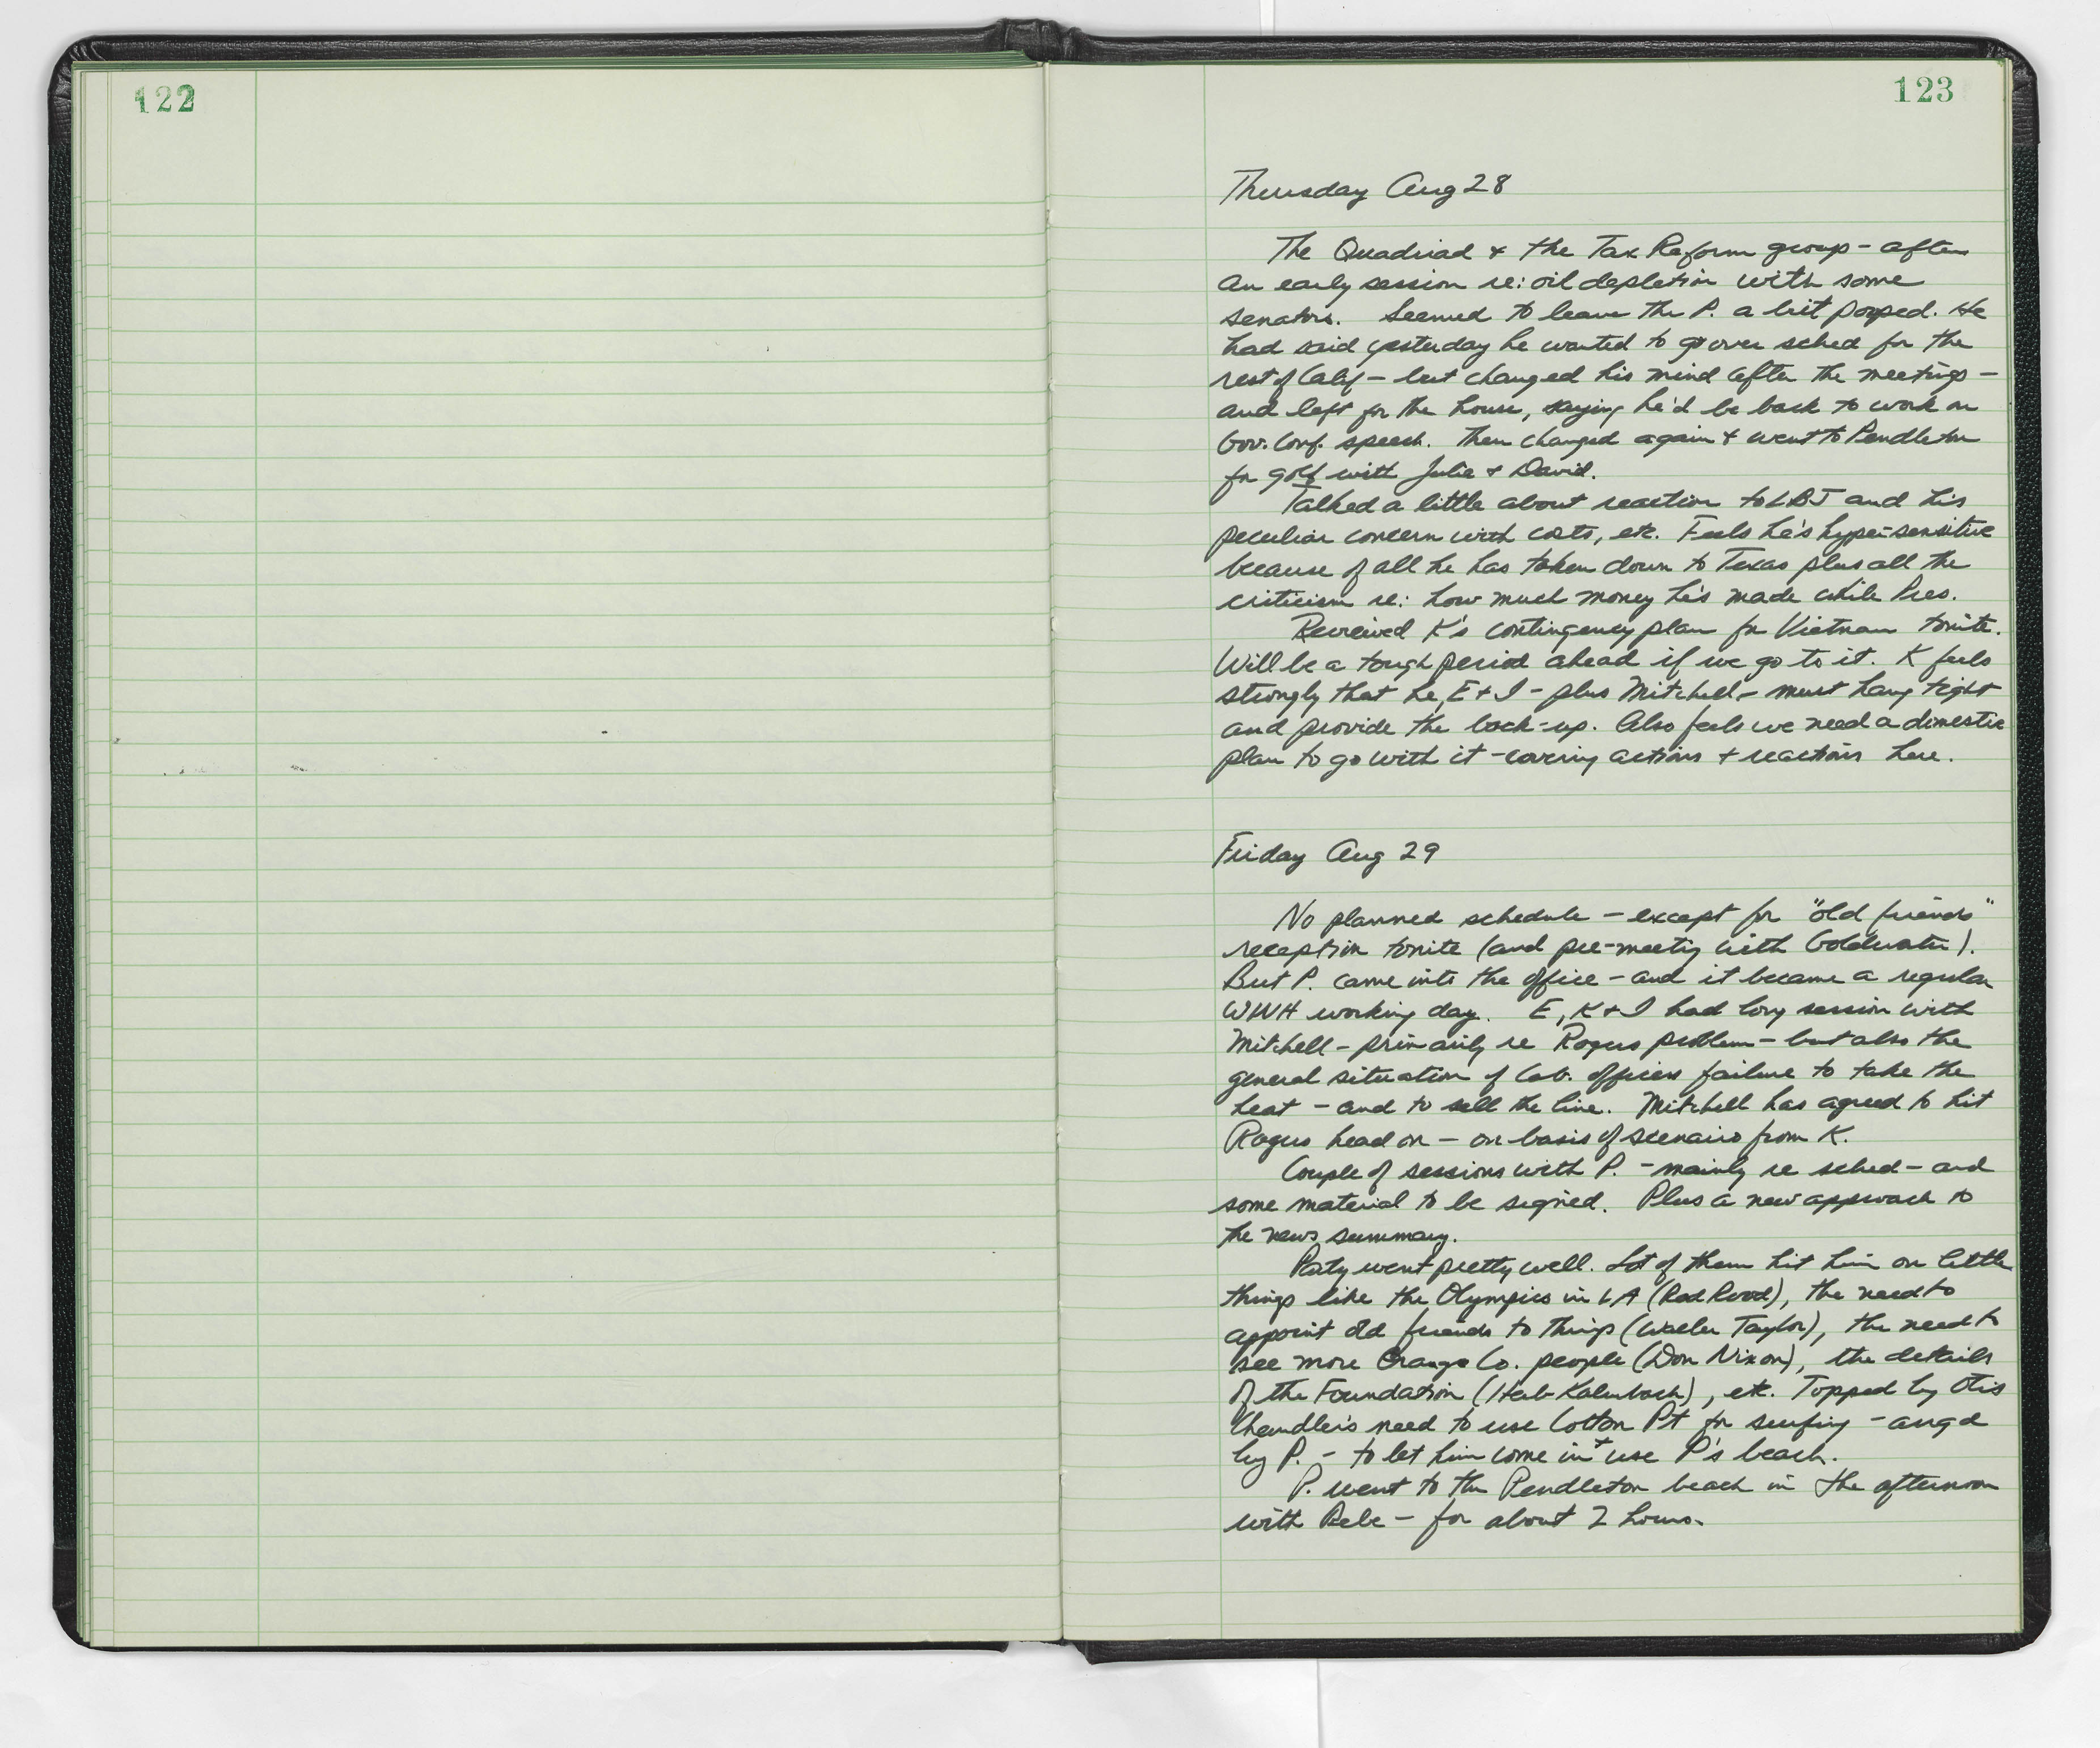 122
123
Thursday Aug 28
The Quadriad & the Tax Reform group - after
an early session re: oil depletion with some
senators. Seemed to leave the P. a bit pooped. He
had said yesterday he wanted to go over sched for the
rest of Calif - but changed his mind after the meetings -
and left for the house, saying he'd be back to work on
Gov. Conf. speech. Then changed again & went to Pendleton
for golf with Julie & David.
Talked a little about reaction to LBJ and his
peculiar concern with costs, etc. Feels he's hyper-sensitive
because of all he has taken down to Texas plus all the
criticism re: how much money he's made while Pres.
Reveived K's contingency plan for Vietnam tonite.
Will be a tough period ahead if we go to it. K feels
strongly that he, E & I - plus Mitchell - must hang tight
and provide the back-up. Also feels we need a domestic
plan to go with it - covering actions & reactions here.
Friday Aug 29
No planned schedule - except for "old friends"
reception tonite (and pre-meeting with Goldwater).
But P. came into the office - and it became a regular
WWH working day. E, K & I had long session with
Mitchell - primarily re Rogers problem - but also the
general situation of Cab. officers failure to take the
heat - and to sell the line. Mitchell has agreed to hit
Rogers head on - on basis of scenario from K.
Couple of sessions with P. - mainly re sched - and
some material to be signed. Plus a new approach to
the news summary.
Party went pretty well. Lot of them hit him on little
things like the Olympics in LA (Rod Rood), the need to
appoint old friends to things (Waller Taylor), the need to
see more Orange Co. people (Don Nixon), the details
of the Foundation (Herb Kalmbach), etc. Topped by Otis
Chandler's need to use Cotton Pt for surfing -
by P. - to let him come in & use P's beach.
P. went to the Pendleton beach in the afternoon
with Bebe - for about 2 hours.